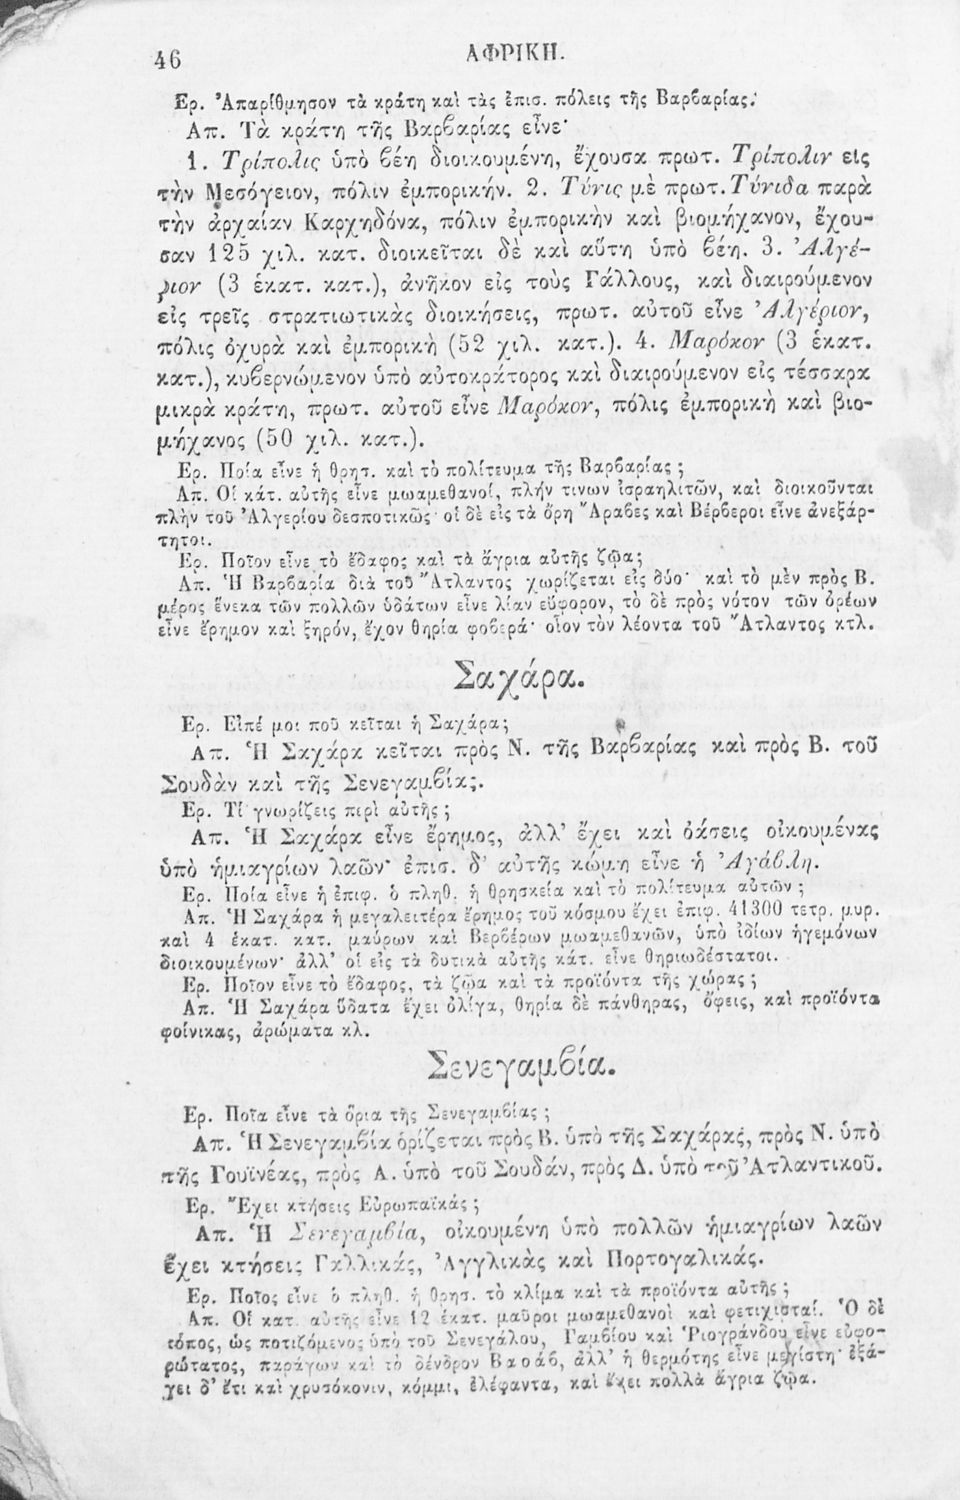 46
ΑΦΡΙΚΗ.
Ερ. Ἀπαρίθμησον τὰ κράτη καὶ τὰς ἐπισ. πόλεις τῆς Βαρβαρίας.
Απ. Τὰ κράτη τῆς Βαρβαρίας εἶνε·
1. Τρίπολις ὑπὸ βέη διοικουμένη, ἔχουσα πρωτ. Τρίπολιν εἰς
τὴν Μεσόγειον, πόλιν ἐμπορικήν. 2. Τύνις μὲ πρωτ. Τύνιδα παρὰ
τὴν ἀρχαίαν Καρχηδόνα, πόλιν ἐμπορικὴν καὶ βιομήχανον, ἔχου-
σαν 125 χιλ. κατ. διοικεῖται δὲ καὶ αὕτη ὑπὸ βέη. 3. Ἀλγέ-
ριον (3 ἑκατ. κατ.), ἀνῆκον εἰς τοὺς Γάλλους, καὶ διαιρούμενον
εἰς τρεῖς στρατιωτικὰς διοικήσεις, πρωτ. αὐτοῦ εἶνε Ἀλγέριον,
πόλις ὀχυρὰ καὶ ἐμπορικὴ (52 χιλ. κατ.). 4. Μαρόκον (3 ἑκατ.
κατ.), κυβερνώμενον ὑπὸ αὐτοκράτορος καὶ διαιρούμενον εἰς τέσσαρα
μικρὰ κράτη, πρωτ. αὐτοῦ εἶνε Μαρόκον, πόλις ἐμπορικὴ καὶ βιο-
μήχανος (50 χιλ. κατ.).
Ερ. Ποία εἶνε ἡ θρησ. καὶ τὸ πολίτευμα τῆς Βαρβαρίας ;
Απ. Οἱ κάτ. αὐτῆς εἶνε μωαμεθανοί, πλήν τινων ἰσραηλιτῶν, καὶ διοικοῦνται
πλὴν τοῦ Ἀλγερίου δεσποτικῶς· οἱ δὲ εἰς τὰ ὄρη Ἄραβες καὶ Βέρβεροι εἶνε ἀνεξάρ-
τητοι.
Ερ. Ποῖον εἶνε τὸ ἔδαφος καὶ τὰ ἄγρια αὐτῆς ζῷα;
Απ. Ἡ Βαρβαρία διὰ τοῦ Ἄτλαντος χωρίζεται εἰς δύο· καὶ τὸ μὲν πρὸς Β.
μέρος ἕνεκα τῶν πολλῶν ὑδάτων εἶνε λίαν εὔφορον, τὸ δὲ πρὸς νότον τῶν ὀρέων
εἶνε ἔρημον καὶ ξηρόν, ἔχον θηρία φοβερά· οἷον τὸν λέοντα τοῦ Ἄτλαντος κτλ.
Σαχάρα.
Ερ. Εἰπέ μοι ποῦ κεῖται ἡ Σαχάρα;
Απ. Ἡ Σαχάρα κεῖται πρὸς Ν. τῆς Βαρβαρίας καὶ πρὸς Β. τοῦ
Σουδὰν καὶ τῆς Σενεγαμβίας.
Ερ. Τί γνωρίζεις περὶ αὐτῆς ;
Απ. Ἡ Σαχάρα εἶνε ἔρημος, ἀλλ' ἔχει καὶ ὀάσεις οἰκουμένας
ὑπὸ ἡμιαγρίων λαῶν· ἐπισ. δ' αὐτῆς κώμη εἶνε ἡ Ἀγάβλη.
Ερ. Ποία εἶνε ἡ ἐπιφ. ὁ πληθ. ἡ θρησκεία καὶ τὸ πολίτευμα αὐτῶν ;
Απ. Ἡ Σαχάρα ἡ μεγαλειτέρα ἔρημος τοῦ κόσμου ἔχει ἐπιφ. 41300 τετρ. μυρ.
καὶ 4 ἑκατ. κατ. μαύρων καὶ Βερβέρων μωαμεθανῶν, ὑπὸ ἰδίων ἡγεμόνων
διοικουμένων· ἀλλ' οἱ εἰς τὰ δυτικὰ αὐτῆς κάτ. εἶνε θηριωδέστατοι.
Ερ. Ποῖον εἶνε τὸ ἔδαφος, τὰ ζῷα καὶ τὰ προϊόντα τῆς χώρας ;
Απ. Ἡ Σαχάρα ὕδατα ἔχει ὀλίγα, θηρία δὲ πάνθηρας, ὄφεις, καὶ προϊόντα
φοίνικας, ἀρώματα κλ.
Σενεγαμβία.
Ερ. Ποῖα εἶνε τὰ ὅρια τῆς Σενεγαμβίας ;
Απ. Ἡ Σενεγαμβία ὁρίζεται πρὸς Β. ὑπὸ τῆς Σαχάρας, πρὸς Ν. ὑπὸ
τῆς Γουϊνέας, πρὸς Α. ὑπὸ τοῦ Σουδάν, πρὸς Δ. ὑπὸ τοῦ Ἀτλαντικοῦ.
Ερ. Ἔχει κτήσεις Εὐρωπαϊκάς ;
Απ. Ἡ Σενεγαμβία, οἰκουμένη ὑπὸ πολλῶν ἡμιαγρίων λαῶν
ἔχει κτήσεις Γαλλικάς, Ἀγγλικὰς καὶ Πορτογαλικάς.
Ερ. Ποῖος εἶνε ὁ πληθ. ἡ θρησ. τὸ κλίμα καὶ τὰ προϊόντα αὐτῆς ;
Απ. Οἱ κατ. αὐτῆς εἶνε 12 ἑκατ. μαῦροι μωαμεθανοὶ καὶ φετιχισταί. Ὁ δὲ
τόπος, ὡς ποτιζόμενος ὑπὸ τοῦ Σενεγάλου, Γαμβίου καὶ Ῥιογράνδου εἶνε εὐφο-
ρώτατος, παράγων καὶ τὸ δένδρον Βαοάβ, ἀλλ' ἡ θερμότης εἶνε μεγίστη· ἐξά-
γει δ' ἔτι καὶ χρυσόκονιν, κόμμι, ἐλέφαντα, καὶ ἔχει πολλὰ ἄγρια ζῷα.